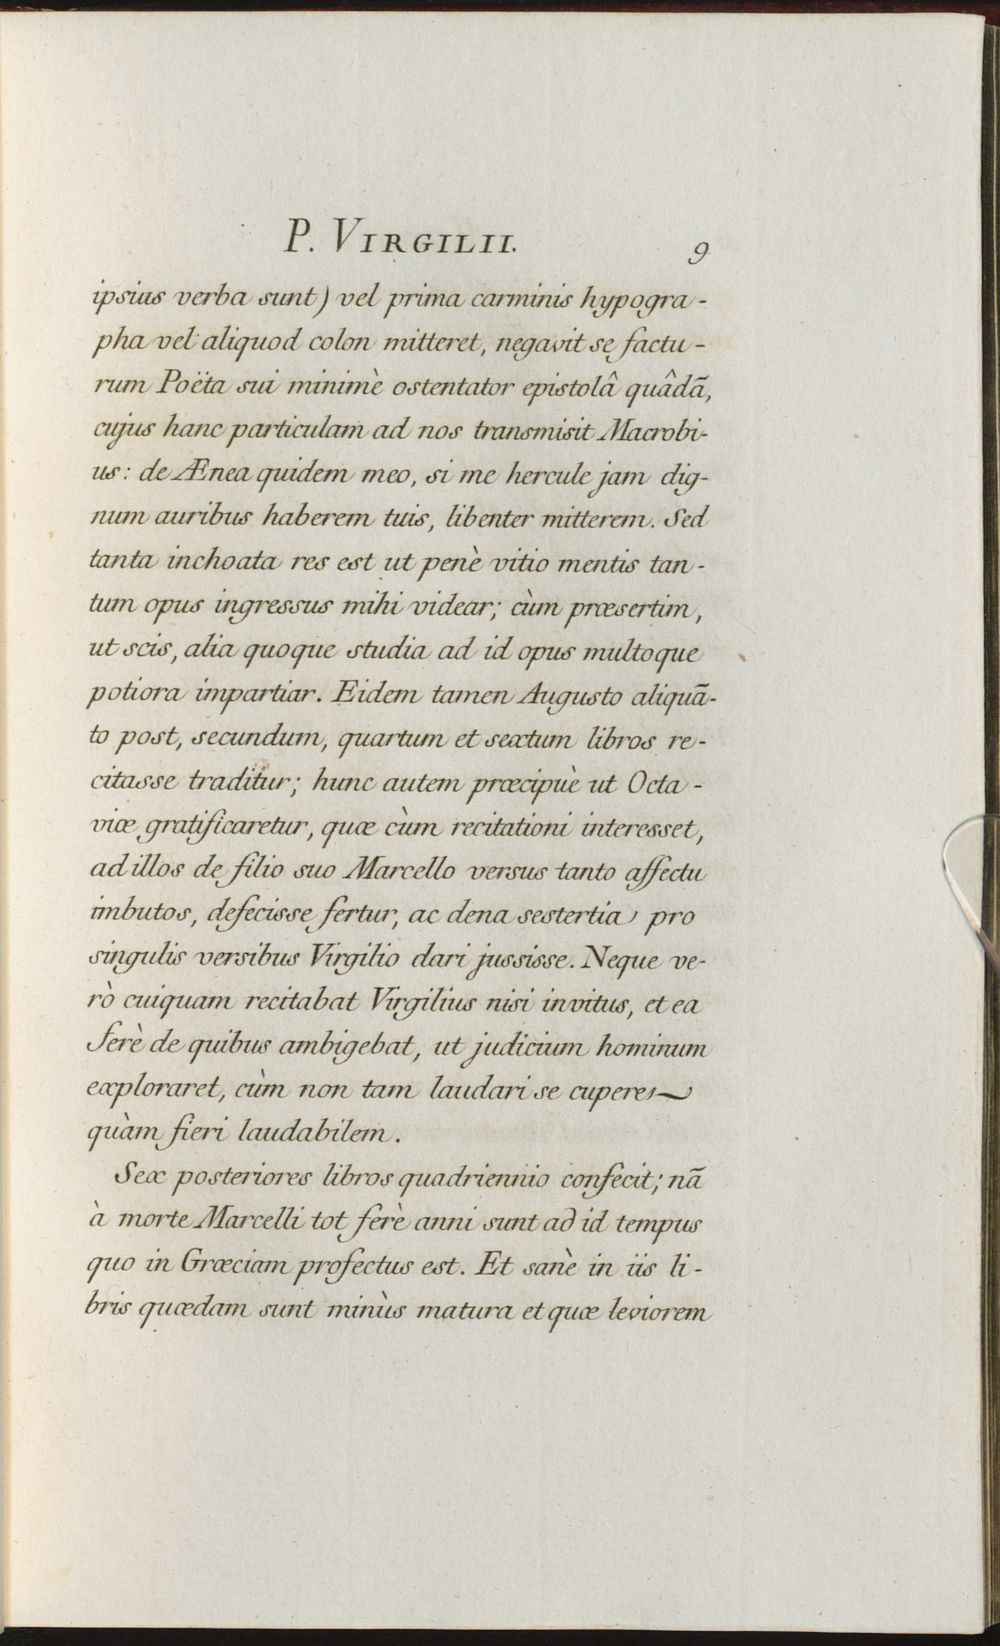 P. VIRGILII. 9
ipsius verba sunt) vel prima carminis hypogra-
pha vel aliquod colon mitteret, negavit se factu-
rum Poëta sui minimè ostentator epistolâ quâdā,
cujus hanc particulam ad nos transmisit Macrobi-
us: de Ænea quidem meo, si me hercule jam dig-
num auribus haberem tuis, libenter mitterem. Sed
tanta inchoata res est ut penè vitio mentis tan-
tum opus ingressus mihi videar; cùm præsertim,
ut scis, alia quoque studia ad id opus multoque
potiora impartiar. Eidem tamen Augusto aliquā-
to post, secundum, quartum et sextum libros re-
citasse traditur; hunc autem præcipuè ut Octa-
viæ gratificaretur, quæ cùm recitationi interesset,
ad illos de filio suo Marcello versus tanto affectu
imbutos, defecisse fertur, ac dena sestertia pro
singulis versibus Virgilio dari jussisse. Neque ve-
rò cuiquam recitabat Virgilius nisi invitus, et ea
ferè de quibus ambigebat, ut judicium hominum
exploraret, cùm non tam laudari se cuperet
quàm fieri laudabilem.
Sex posteriores libros quadriennio confecit; nā
à morte Marcelli tot ferè anni sunt ad id tempus
quo in Græciam profectus est. Et sanè in iis li-
bris quædam sunt minùs matura et quæ leviorem